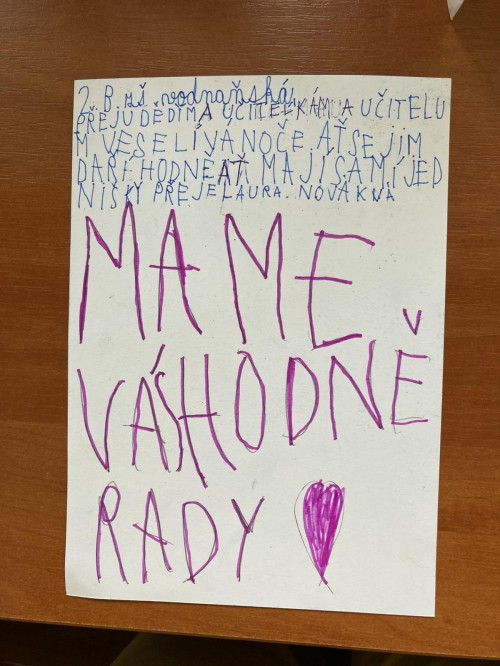 2. B zš vodňanská,
PŘEJU DĚDÍM A UČITELKÁM A UČITELU
M VESELÍ VÁNOČE. AŤ SE JIM
DAŘÍ HODNE AŤ MAJÍ SAMÍ JED
NIŠKY PŘEJE LAURA. NOVAKVA
MAME
VÁS HODNĚ
RADY